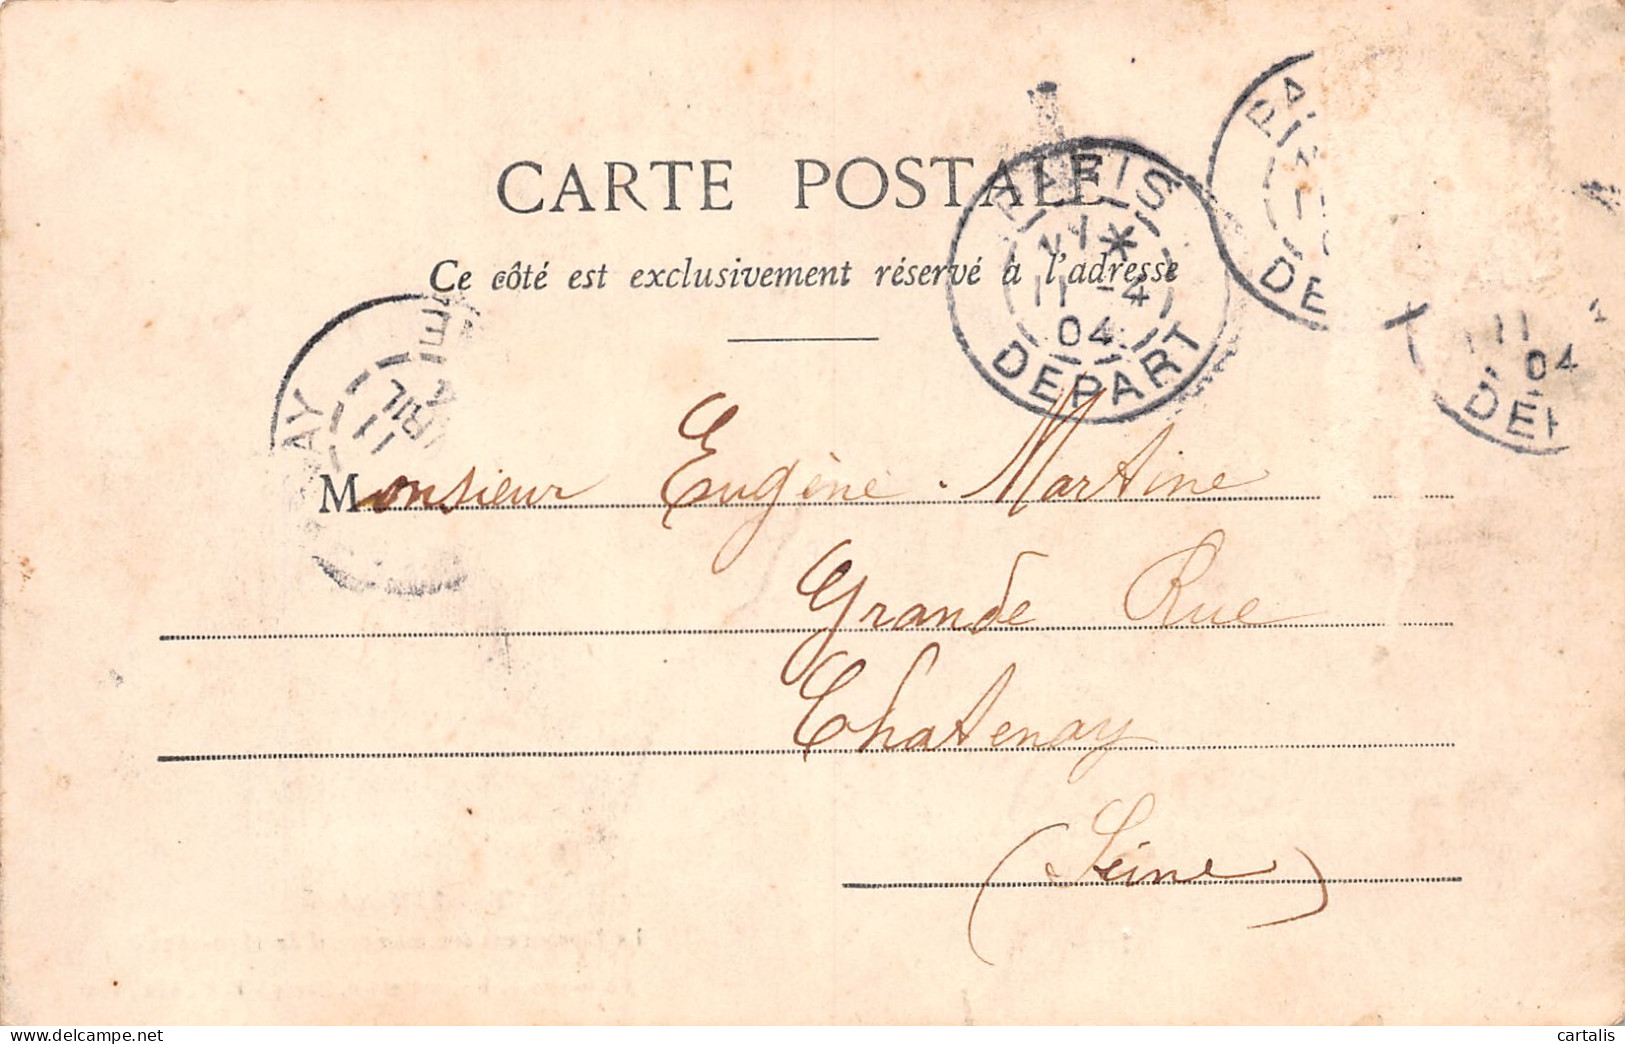 CARTE POSTALE
Ce côté est exclusivement réservé à l'adresse
PARIS
11 -4
04
DEPART
PA
DE
11
04
DEP
AY
11
AVRIL
Monsieur Eugène Martine
Grande Rue
Chatenay
(Seine)
cartalis